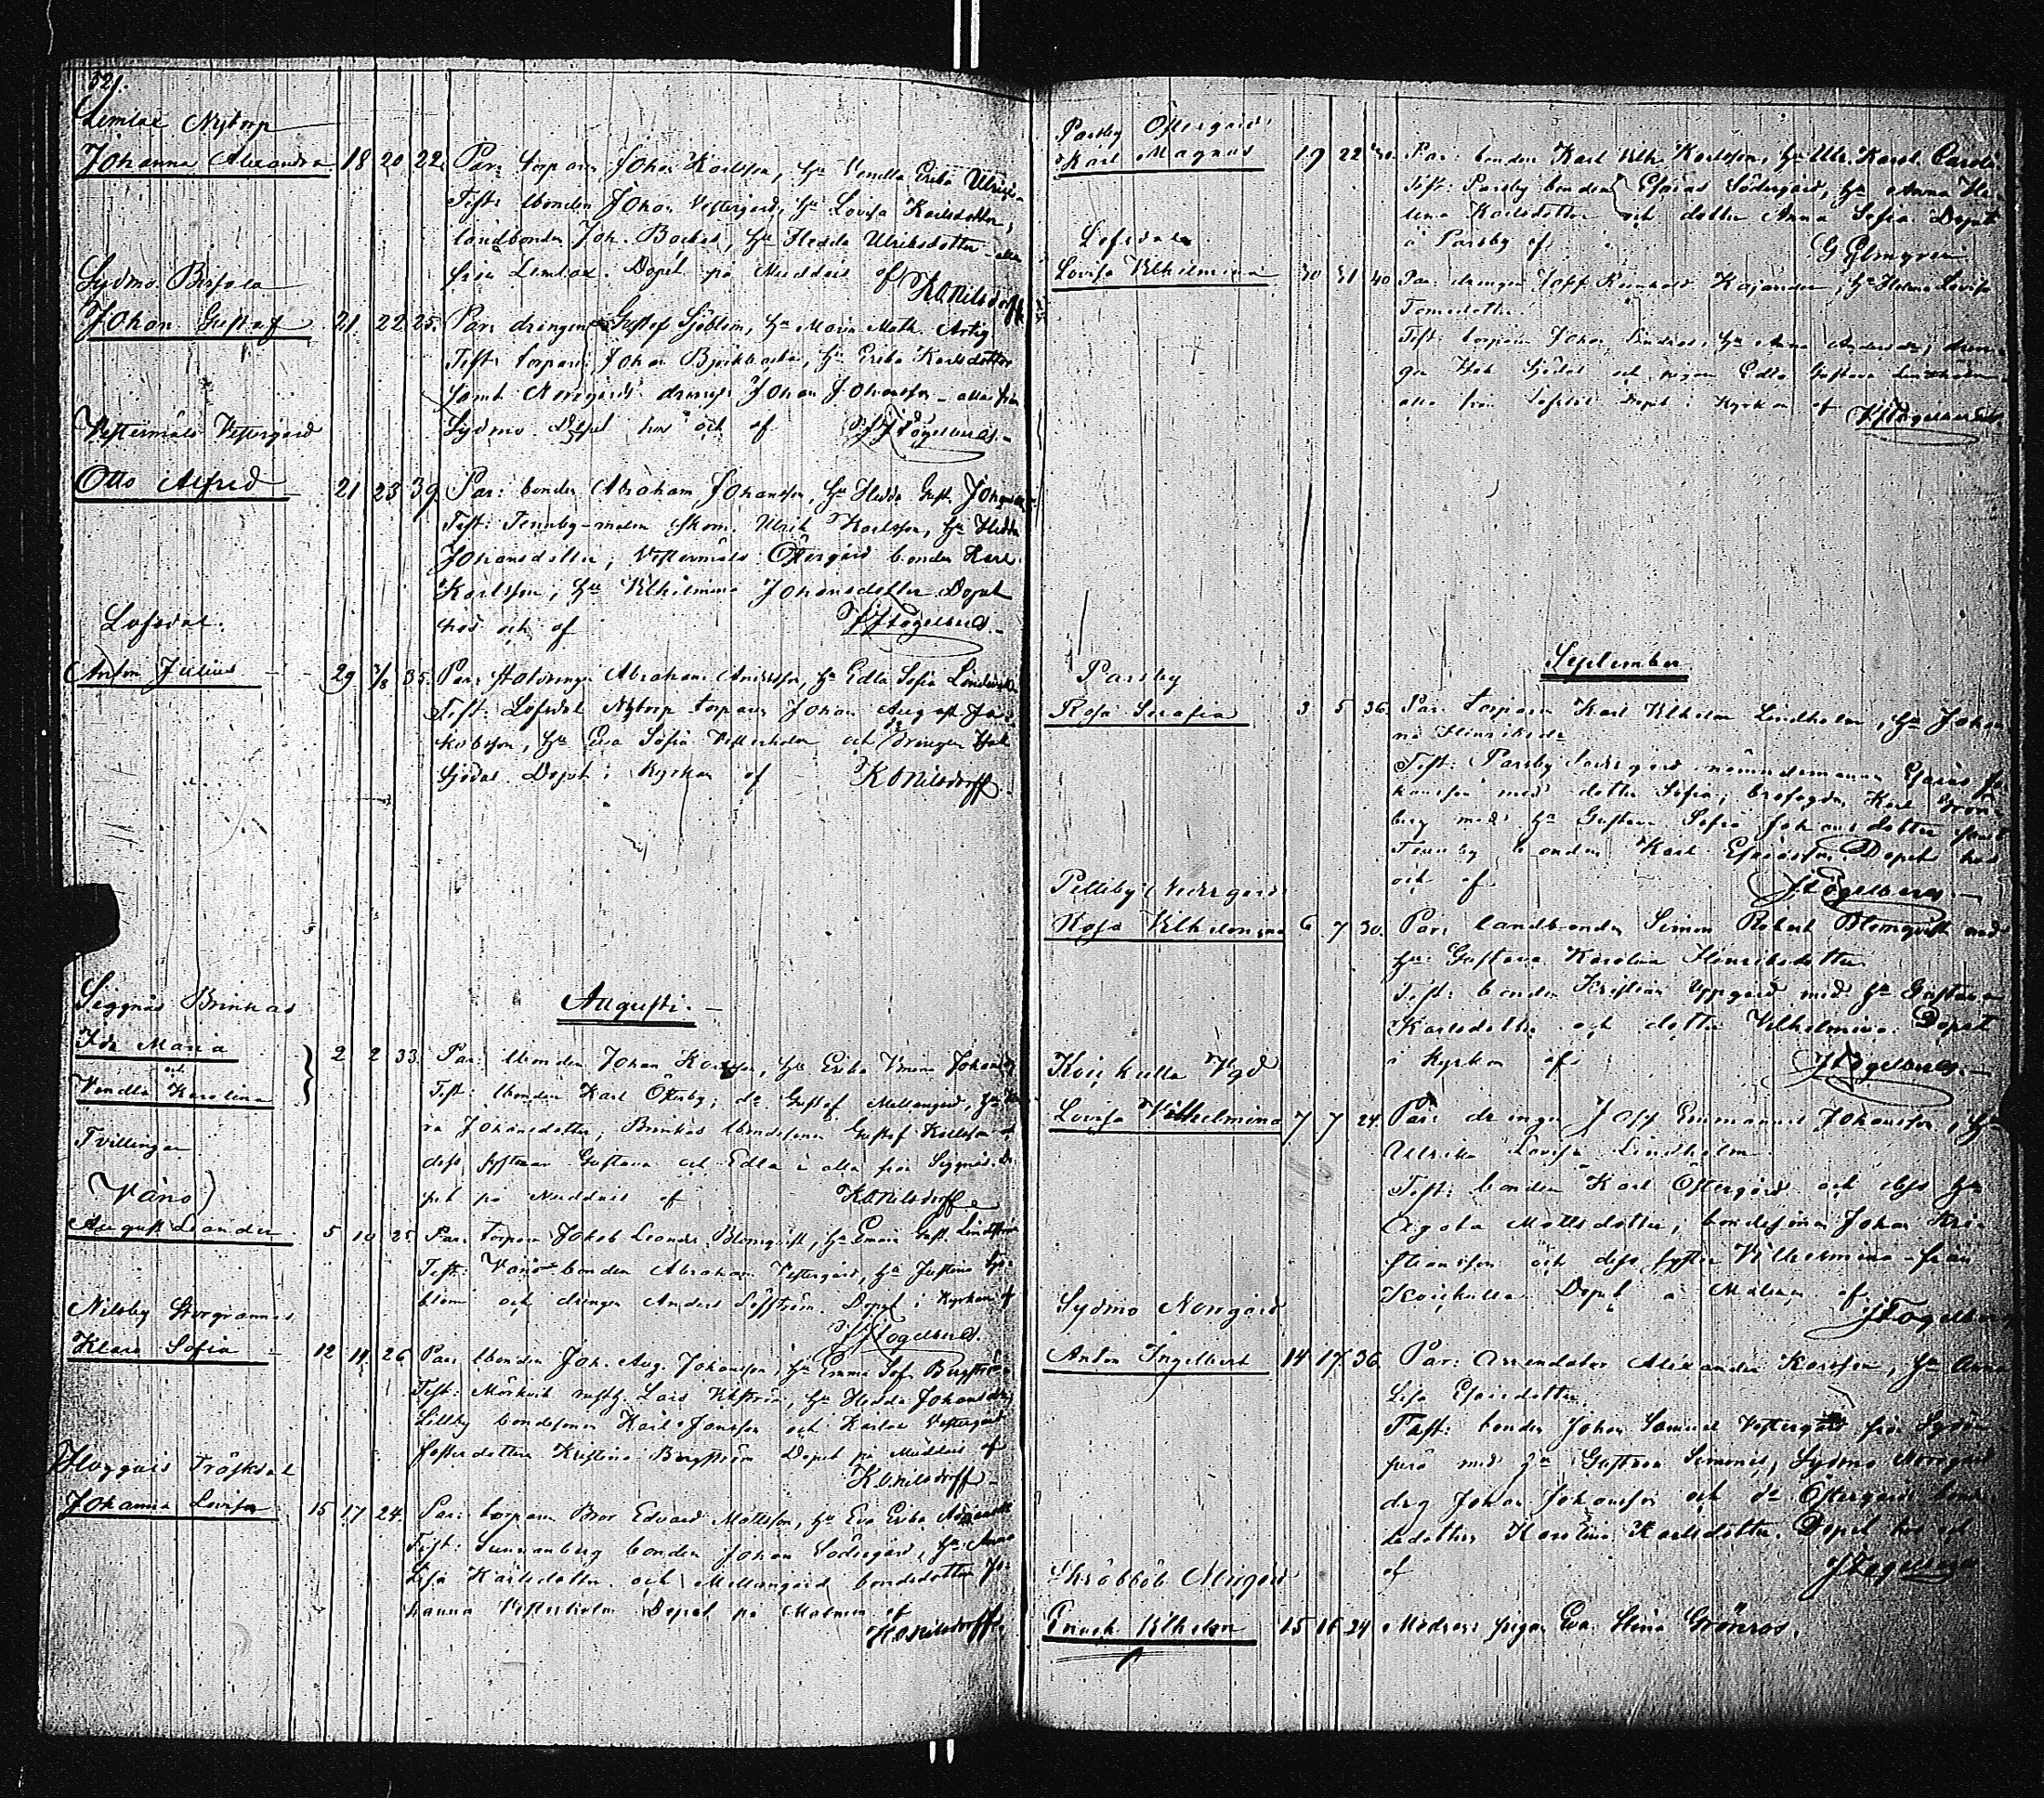 521.
Lemlax Nytorp
Johanna Alexandra 18 20 22. Par: torparen Johan Karlsson, hu Vendla Erika Ulrics-
Test: bonden Johan Vestergård, hu Lovisa Karlsdotter,
landbonden Joh. Backas, hu Hedda Ulriksdotter - alla
från Lemlax. Döpt på Muddais af K O Nilsdorff
Sydmo
Johan Gustaf 21 22 25. Par: drängen Gustaf Sjöblom, hu Maria Math. Artig
Test: torparen Johan Björkbacka, hu Erika Karlsdotter
samt Norrgårds drängen Johan Johansson - alla från
Sydmo. Döpt hos och af Fogelberg.
Vestermåls Vestergård
Otto Alfred 21 23 39. Par: bonden Abraham Johansson, hu Hedda Gust.
Test: Tennby-malm skom. Ulrik Karlsson, hu Hedda
Johansdotter; Vestermåls Östergård bonden Karl
Karlsson, hu Vilhelmina Johansdotter Döpt
hos och af Fogelberg.
Lofsdal.
Anton Julius 29 3/8 35. Par: Abraham Andersson, hu Edla Sofia
Test: Lofsdal Nytorp torparen Johan August Ja-
kobsson, hu Eva Sofia Vesterholm och drängen Isak
Sjödal. Döpt i kyrkan af K O Nilsdorff
Augusti.
Siggnäs Brinkas
Ida Maria
och
Vendla Karolina 2 2 33. Par: bonden Johan Karlsson, hu Erika
Tvillingar
Test: bonden Karl Österby; do Gustaf Mellangård, hu
ra Johansdotter; Brinkas bondesonen Gustaf Karlsson o
dess systrar Gustava och Edla - alla från Siggnäs. Dö-
pt på Muddais af K O Nilsdorff
Vånö
August Leander 5 10 25. Par: torparen Jakob Leander Blomqvist, hu Emma Gust. Lindström
Test: Vånö bonden Abraham Vestergård, hu Justina Sjö-
blom och drängen Anders Löfström. Döpt i kyrkan af
Fogelberg.
Nilsby Storgrannas
Klara Sofia 12 14 26 Par: bonden Joh. Aug. Johansson, hu Emma Sof. Bergström
Test: Mörkvik Lars, hu Hedda Johansdotter
Lillby bondesonen Karl Jansson och Vestergård
fosterdottern Kristina Bergström Döpt på Muddais af
K. O. Nilsdorff
Haggais Träskdal
Johanna Lovisa 15 17 24. Par: torparen Bror Edvard Mattsson, hu Eva Erika
Test: Sunnanberg bonden Johan Södergård, hu Anna
Lisa Karlsdotter och Mellangård bondedotter Jo-
hanna Vesterholm Döpt på Malmen af
K. O. Nilsdorff.
Parsby Östergård
Karl Magnus 19 22 30. Par: bonden Karl Vilh. Karlsson, hu Ulr. Karol. Caroli
Test: Parsby bonden Esaias Södergård, hu Anna He-
lena Karlsdotter och dotter Anna Sofia Döpt
å Parsby af G Elmgren
Lofsdal
Lovisa Vilhelmina 30 31 40 Par: drängen Josef Reinhold Kajander, hu Helena Lovisa
Tomsdotter.
Test: torparen Johan Lindros, hu Anna Andersdr, drän-
gen Isak Sjödal och pigan Edla Gustava Lindholm
alla från Lofsdal Döpt i kyrkan af Fogelberg
September
Parsby
Rosa Serafia 3 5 36. Par: torparen Karl Vilhelm Lindholm, hu Johan-
na Henriksdr
Test: Parsby Norrgård nämndemannen Esaias Jo-
hansson med dotter Sofia; brofogden Karl Grön-
berg med hu Gustava Sofia Johansdotter samt
Tennby bonden Karl Esaiasson. Döpt hos
och af Fogelberg.
Petteby Norrgård
Rosa Vilhelmina 6 7 30. Par: landbonden Simon Robert Blomqvist med
hu Gustava Karolina Henriksdotter
Test: bonden Kristian Uppgård med hu Gustava
Karlsdotter och dotter Vilhelmina. Döpt
i kyrkan af Fogelberg.
Koickulla
Lovisa Vilhelmina 7 7 24. Par: drängen Josef Emmanuel Johansson, hu
Ullrika Lovisa Lindholm.
Test: bonden Karl Östergård och dess hu
Agata Mattsdotter, bondesonen Johan Kri-
stiansson och dess syster Vilhelmina - från
Koickulla Döpt å Malmen af
Fogelberg
Sydmo Norrgård
Anton Ingelbert 14 17 36. Par: arrendator Alexander Karlsson, hu Anna
Lisa Esaiedotter.
Test: bonden Johan Samuel Vestergård från
med hu Gustava Simonis, Sydmo Norrgård
drg Johan Johansson och do Östergårds bon-
dedotter Karolina Karlsdotter. Döpt hos och
af Fogelberg
Skräbböle
Enock Vilhelm 15 16 24 Modren: pigan Eva Stina Grönros.